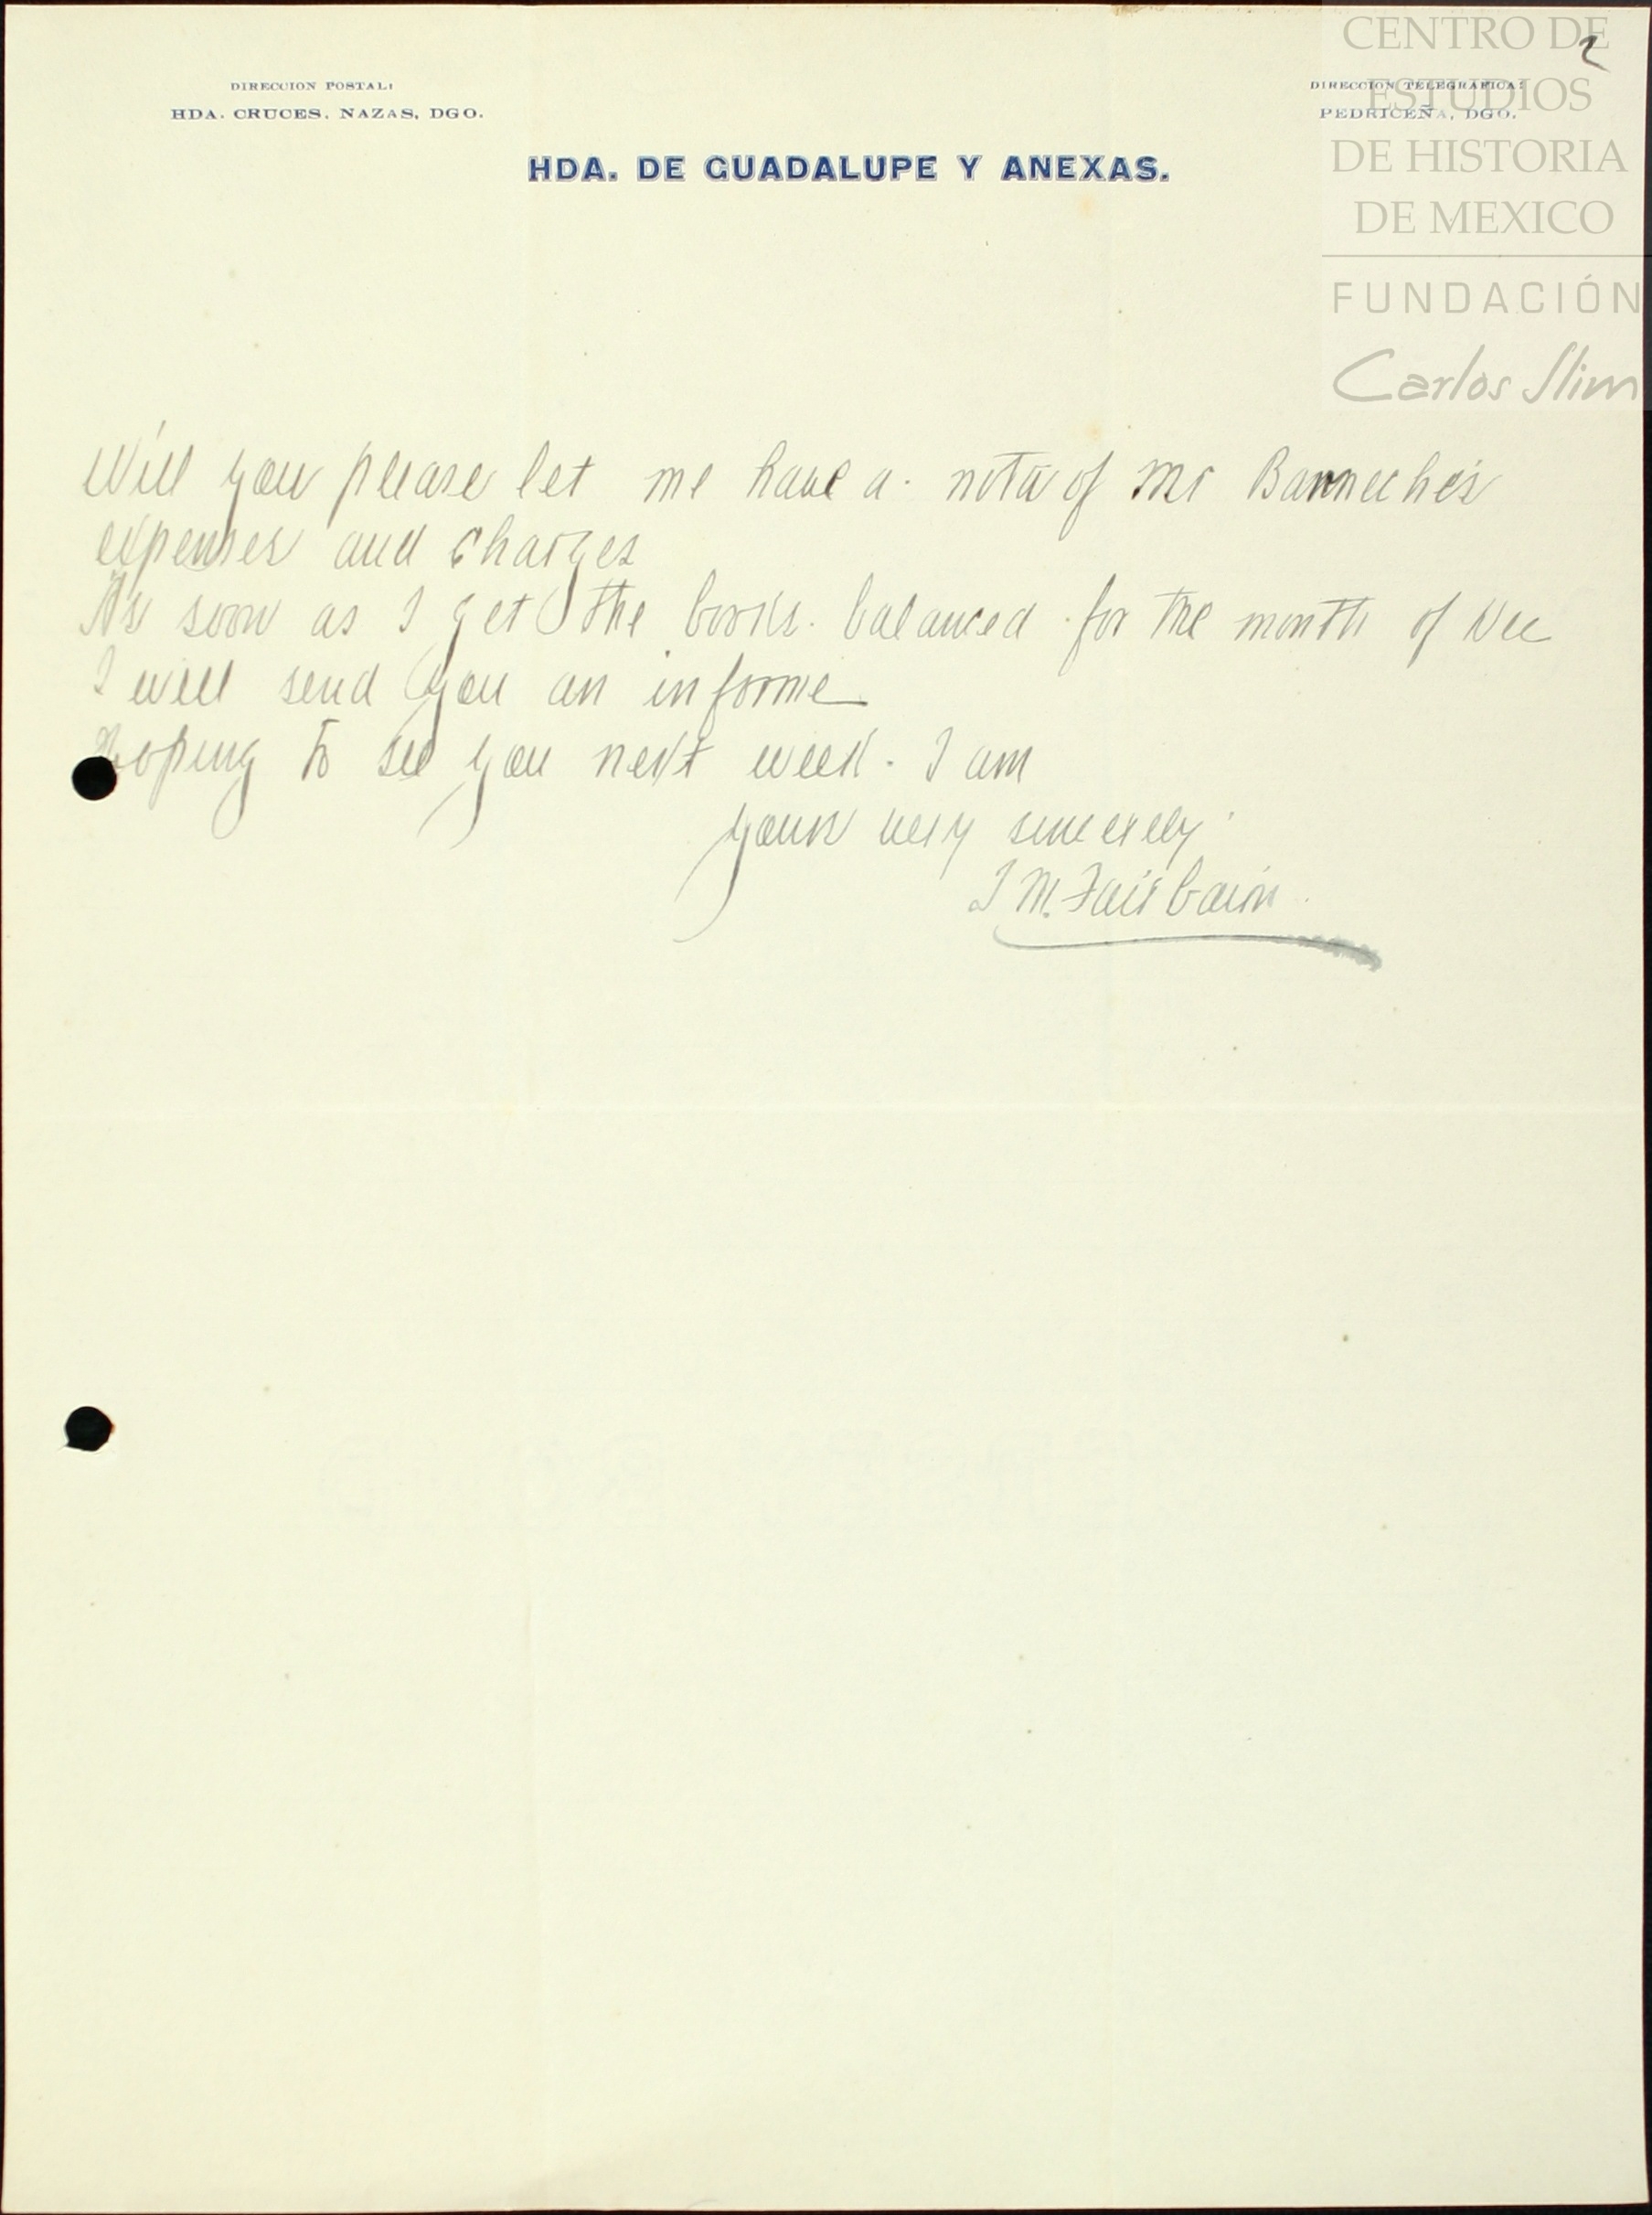 CENTRO DE
ESTUDIOS
DE HISTORIA
DE MEXICO
FUNDACIÓN
Carlos Slim
2
DIRECCION POSTAL:
HDA. CRUCES, NAZAS, DGO.
DIRECCION TELEGRAFICA:
PEDRICEÑA, DGO.
HDA. DE GUADALUPE Y ANEXAS.
Will you please let me have a nota of Mr
expenses and charges
As soon as I get the books balanced for the month of Dec
I will send you an informe
Hoping to see you next week. I am
yours very sincerely
M. Fairbairn